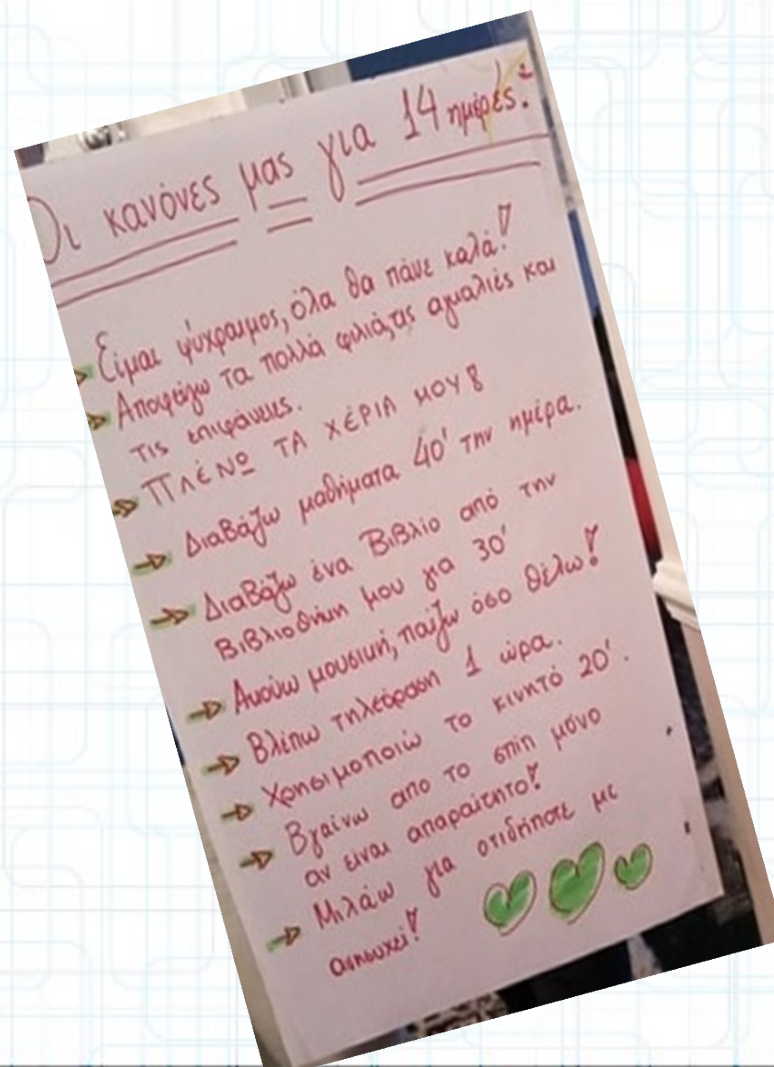 Οι κανόνες μας για 14 ημέρες:
Είμαι ψύχραιμος, όλα θα πάνε καλά!
Αποφεύγω τα πολλά φιλιά, τις αγκαλιές και
τις επιφάνειες.
ΠΛΕΝΩ ΤΑ ΧΕΡΙΑ ΜΟΥ!
Διαβάζω μαθήματα 40' την ημέρα.
Διαβάζω ένα Βιβλίο από την
Βιβλιοθήκη μου για 30'
Ακούω μουσική, παίζω όσο θέλω!
Βλέπω τηλεόραση 1 ώρα.
Χρησιμοποιώ το κινητό 20'.
Βγαίνω απο το σπίτι μόνο
αν είναι απαραίτητο!
Μιλάω για οτιδήποτε με
απασχολεί!